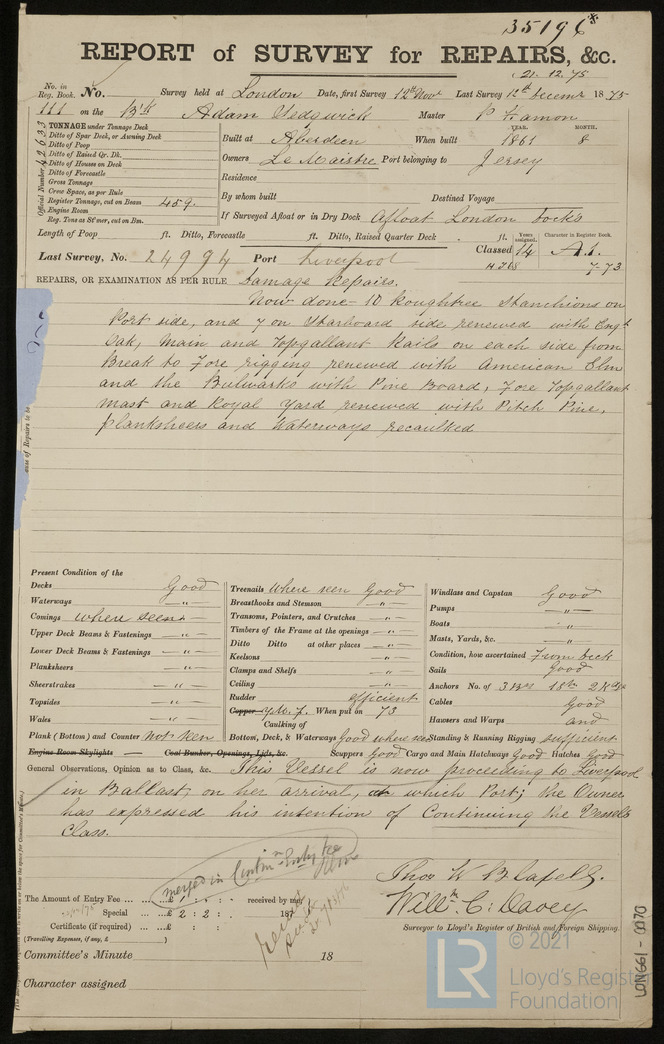 35196
REPORT of SURVEY for REPAIRS, &c.
21.12.75
No. in Reg. Book. No. Survey held at London Date, first Survey 12th Nov Last Survey 12th Decemr 1875
111 on the Bk Adam Sedgwick Master P Hamon
Official Number 42633
TONNAGE under Tonnage Deck
Ditto of Spar Deck, or Awning Deck
Ditto of Poop
Ditto of Raised Qr. Dk.
Ditto of Houses on Deck
Ditto of Forecastle
Gross Tonnage
Crew Space, as per Rule
Register Tonnage, cut on Beam 459.
Engine Room
Reg. Tons as St'mer, cut on Bm.
YEAR. MONTH.
Built at Aberdeen When built 1861 8
Owners Le Maistre Port belonging to Jersey
Residence
By whom built Destined Voyage
If Surveyed Afloat or in Dry Dock Afloat London Docks
Length of Poop ft. Ditto, Forecastle ft. Ditto, Raised Quarter Deck ft.
Years assigned. Character in Register Book.
Last Survey, No. 24994 Port Liverpool Classed 14 A1.
7.73
REPAIRS, OR EXAMINATION AS PER RULE Damage Repairs.
Now done - 10 Roughtree Stanchions on
Port side, and 7 on Starboard side renewed with Engh
Oak, Main and Topgallant Rails on each side from
Break to Fore rigging renewed with American Elm
and the Bulwarks with Pine Board, Fore Topgallant
mast and Royal Yard renewed with Pitch Pine,
Planksheers and Waterways recaulked
Present Condition of the
Decks Good
Waterways -"-
Comings where seen -"-
Upper Deck Beams & Fastenings -"-
Lower Deck Beams & Fastenings -"-
Planksheers -"-
Sheerstrakes -"-
Topsides -"-
Wales -"-
Plank (Bottom) and Counter Not seen
Engine Room Skylights — Coal Bunker, Openings, Lids, &c.
Treenails where seen Good
Breasthooks and Stemson -"-
Transoms, Pointers, and Crutches -"-
Timbers of the Frame at the openings -"-
Ditto Ditto at other places -"-
Keelsons -"-
Clamps and Shelfs -"-
Ceiling -"-
Rudder efficient
Copper Y.M.F. When put on 73
Caulking of
Bottom, Deck, & Waterways Good where seen
Scuppers Good Cargo and Main Hatchways Good Hatches Good
Windlass and Capstan Good
Pumps -"-
Boats -"-
Masts, Yards, &c. -"-
Condition, how ascertained From Deck
Sails Good
Anchors No. of 3 Brs 1 Stm 2 Kdge
Cables Good
Hawsers and Warps and
Standing & Running Rigging sufficient
General Observations, Opinion as to Class, &c. This Vessel is now proceeding to Liverpool
in Ballast on her arrival, at which Port; the Owner
has expressed his intention of Continuing the Vessels
Class.
merged in Contin Entry fee
Thos W B Capell.
Willm C: Davey
The Amount of Entry Fee ... £ : : received by me,
Special ... £ 2 : 2 : 187
Certificate (if required) ... £ : :
(Travelling Expenses, if any, £ )
Surveyor to Lloyd's Register of British and Foreign Shipping.
Committee's Minute 18
Character assigned
LR © 2021
Lloyd's Register
Foundation
LON661-0070